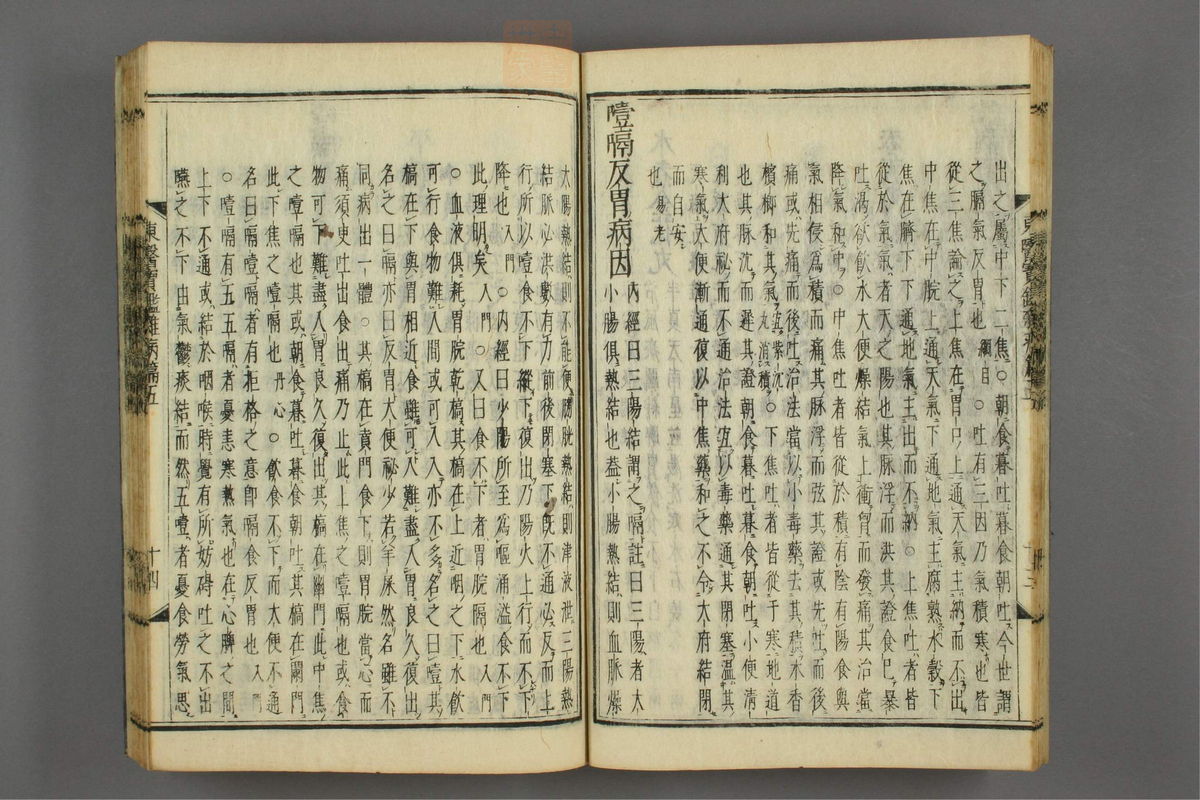 出之屬中下二焦○朝食暮吐暮食朝吐今世謂
之膈氣反胃也綱目○吐有三因乃氣積寒也皆
從三焦論之上焦在胃口上通天氣主納而不出
中焦在中脘上通天氣下通地氣主腐熟水穀下
焦在臍下下通地氣主出而不納○上焦吐者皆
從於氣氣者天之陽也其脉浮而洪其證食已暴
吐渴欲飮水大便燥結氣上衝胷而發痛其治當
降氣和中○中焦吐者皆從於積有陰有陽食與
氣相侵爲積而痛其脉浮而弦其證或先吐而後
痛或先痛而後吐治法當以小毒藥去其積木香
檳榔和其氣宜紫沉丸消積○下焦吐者皆從于寒地道
也其脉沉而遲其證朝食暮吐暮食朝吐小便淸
利大府祕而不通治法宜以毒藥通其閉塞溫其
寒氣大便漸通復以中焦藥和之不令大府結閉
而自安
也易老
噎膈反胃病因 內經曰三陽結謂之隔註曰三陽者大
小腸俱熱結也盖小腸熱結則血脉燥
東醫寶鑑雜病篇五
太陽熱結則不能便膀胱熱結則津液泄三陽熱
結脉必洪數有力前後閉塞下旣不通必反而上
行所以噎食不下縱下復出乃陽火上行而不下
降也入門○內經曰少陽所至爲嘔涌溢食不下
此理明矣入門○又曰食不下者胃脘隔也入門
○血液俱耗胃脘乾槁其槁在上近咽之下水飮
可行食物難入間或可入入亦不多名之曰噎其
槁在下與胃相近食雖可入難盡入胃良久復出
名之曰膈亦曰反胃大便祕少若羊屎然名雖不
同病出一體○其槁在賁門食下則胃脘當心而
痛須臾吐出食出痛乃止此上焦之噎膈也或食
物可下難盡入胃良久復出其槁在幽門此中焦
之噎膈也其或朝食暮吐暮食朝吐其槁在闌門
此下焦之噎膈也丹心○飮食不下而大便不通
名曰膈噎膈者有拒格之意卽膈食反胃也入門
○噎膈有五五膈者憂恚寒熱氣也在心脾之間
上下不通或結於咽喉時覺有所妨碍吐之不出
嚥之不下由氣鬱痰結而然五噎者憂食勞氣思
東醫寶鑑雜病篇五 十四